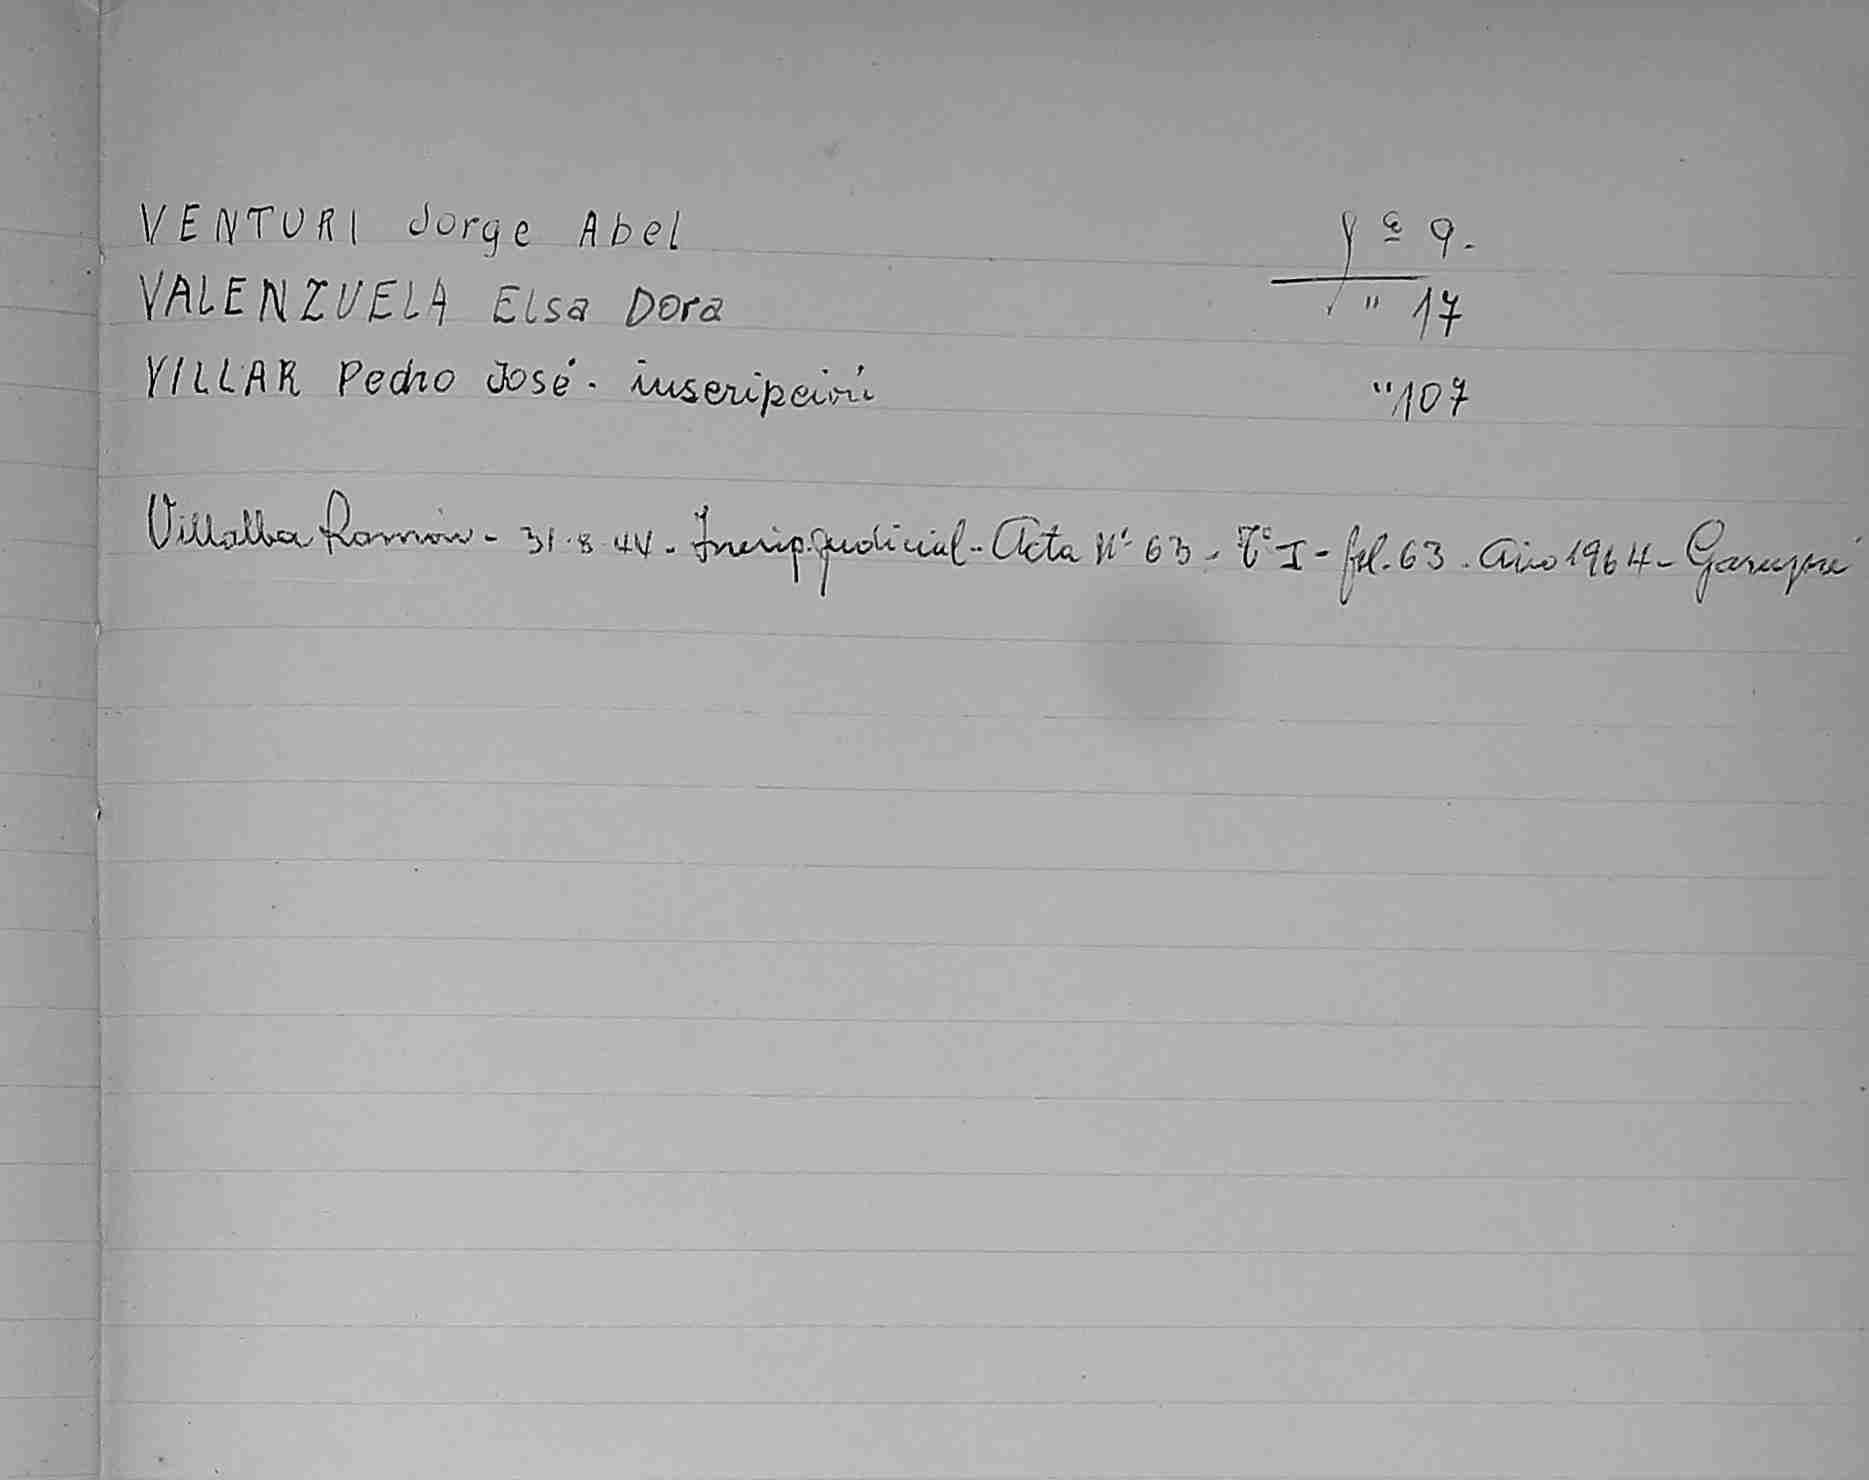 VENTURI Jorge Abel fº 9.
VALENZUELA Elsa Dora " 17
VILLAR Pedro José. inscripción "107
Villalba Ramón - 31.8.44. Inscrip. judicial. Acta Nº 63 - Tº I - fol. 63. Año 1964 - Garupá